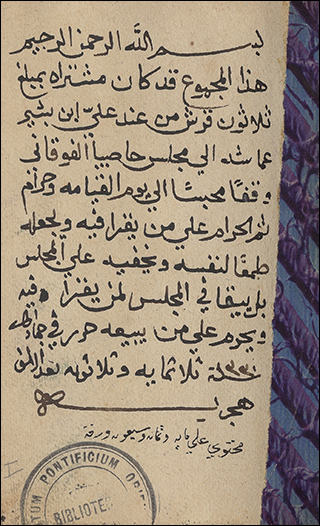 بسم الله الرحمن الرحيم
هذا المجموع قد كان مشتراه بمبلغ
ثلاثون قرش من عند علي ابن بشير
عماشه الي مجلس حاصبيا الفوقاني
وقفًا محبسًا الي يوم القيامه وحرام
ثم الحرام علي من يقرا فيه ويحوله
طمعًا لنفسه ويخفيه علي المجلس
بل يبقا في المجلس لمن يقرا فيه
ويحرم علي من يبيعه حرر في جماد
سنة ثلاثمايه وثلاثون بعد الالف
هجريه
محتوي علي مايه وثمان وسبعون ورقة
PONTIFICIUM
BIBLIOTE